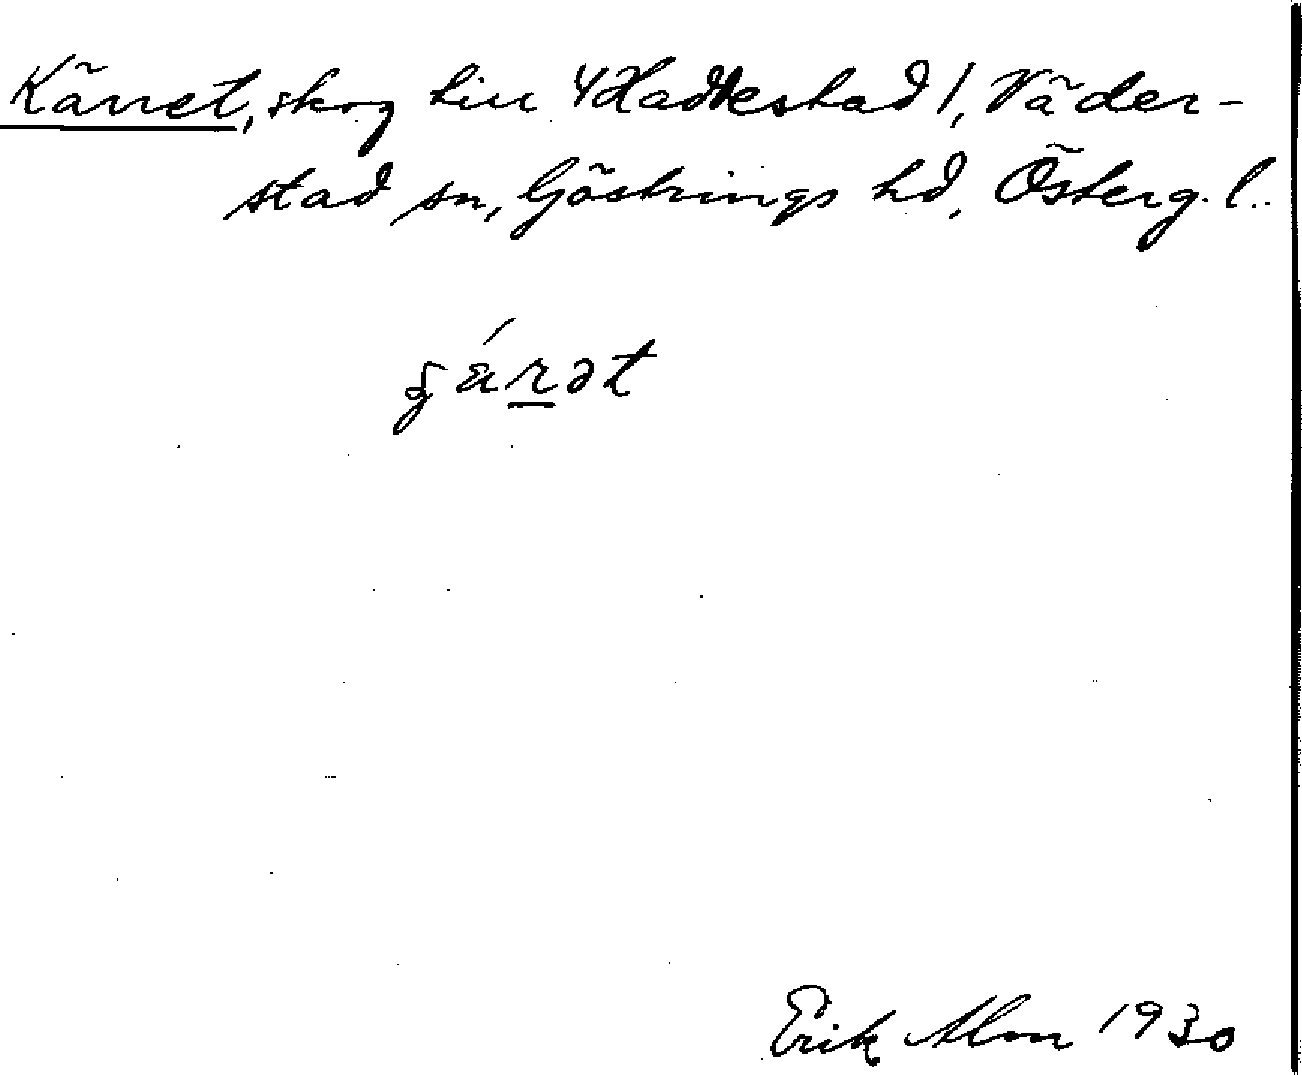 Kärret, skog till Hadkestad 1, Väder-
stad sn, Göstrings hd, Österg. l.
Erik Alm 1930